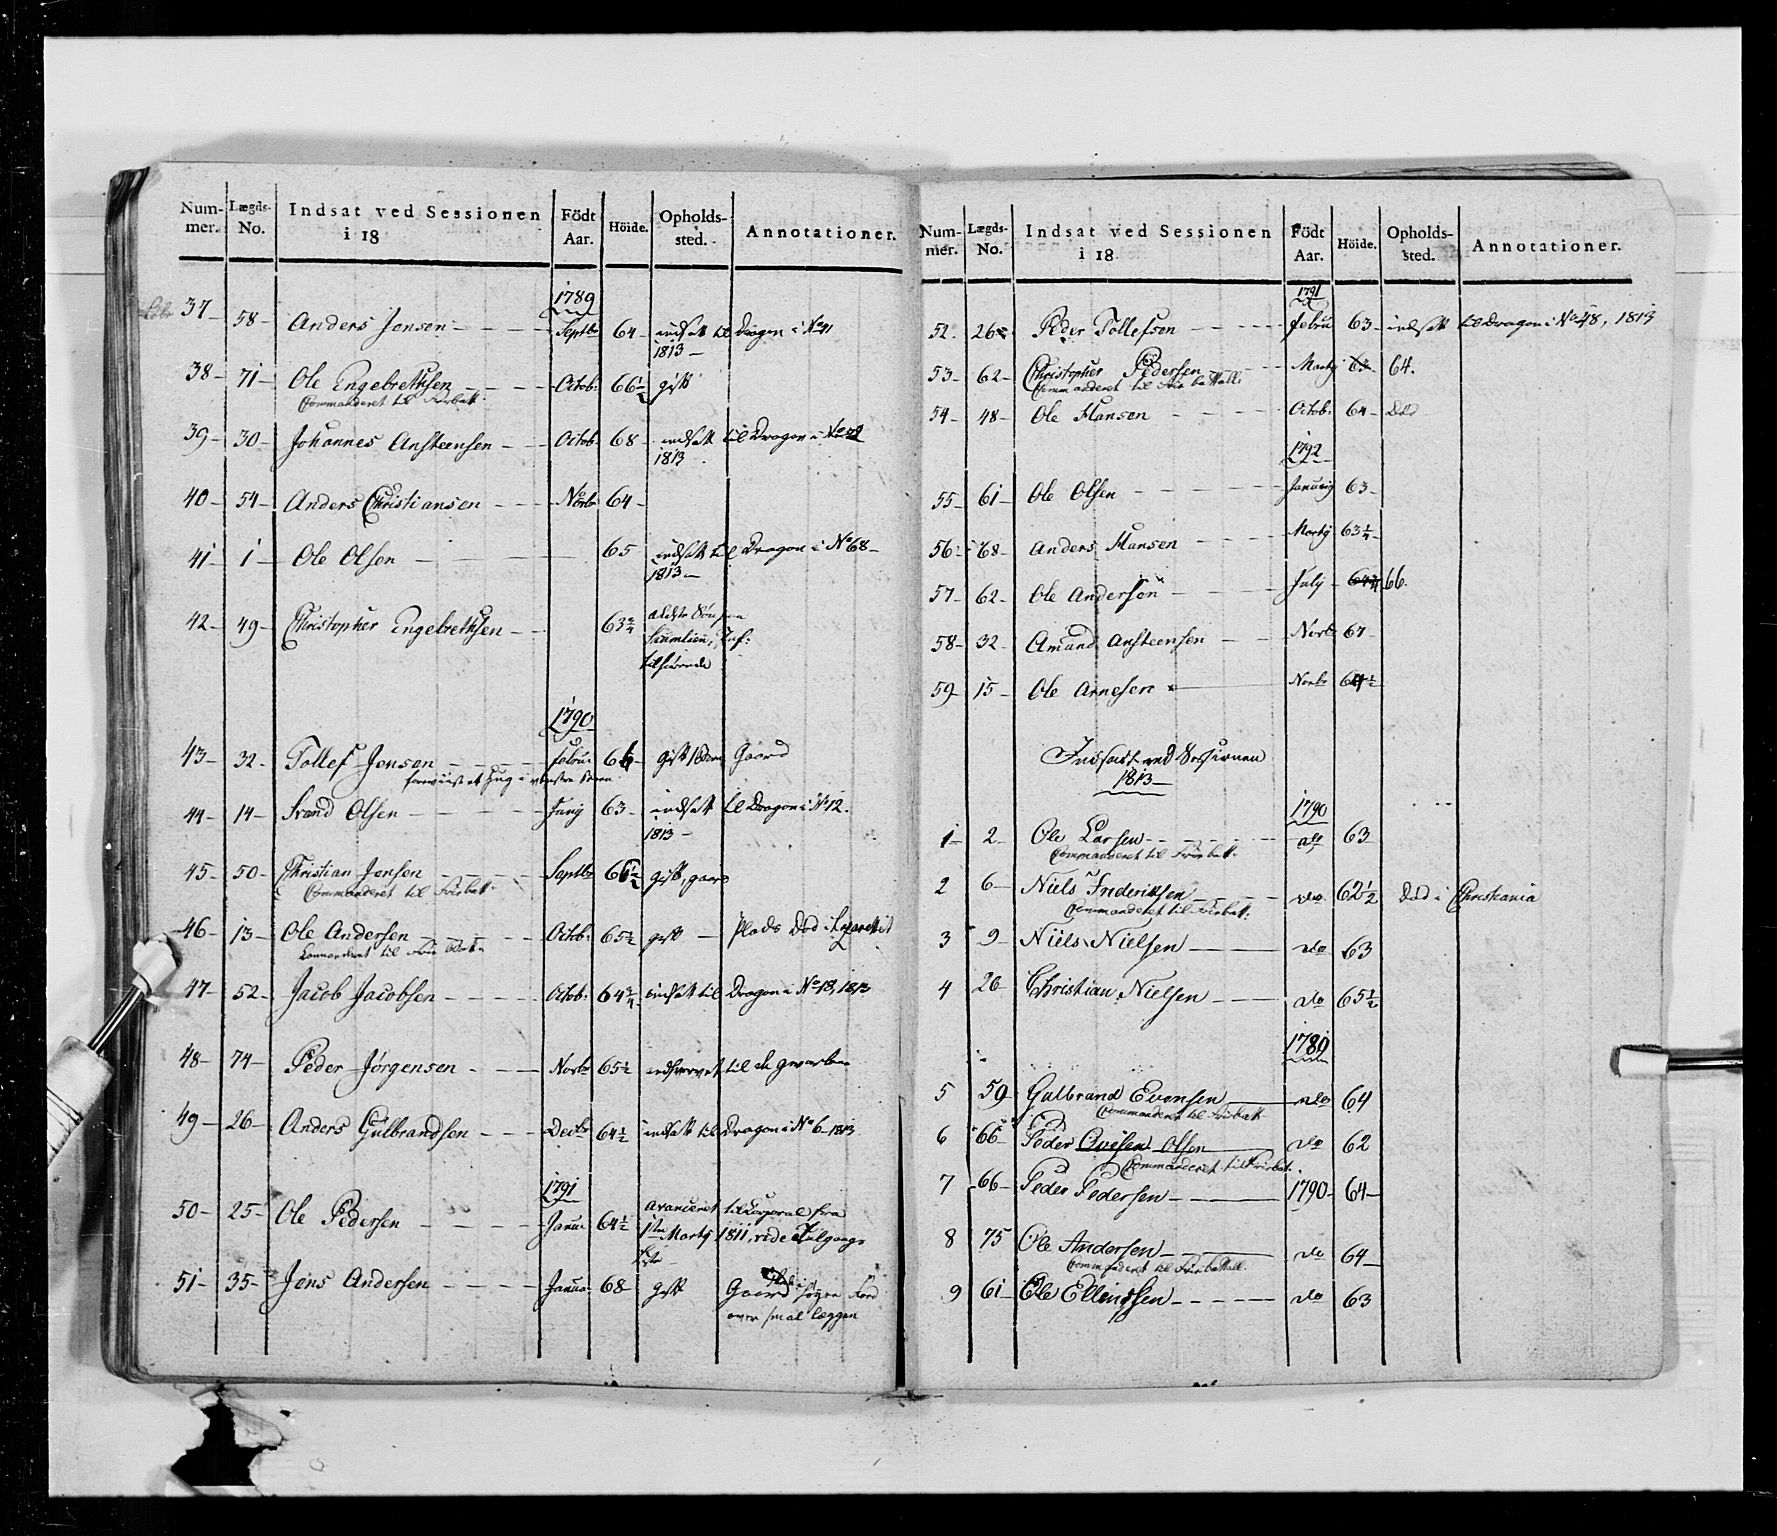 Num- Lægds- Indsat ved Sessionen Födt Höide. Opholds- Annotationer.
mer. No. i 18 Aar. sted.
1789
37 - 58 - Anders Jensen - Septbr 64 - indsatt til Dragon i No 41
1813 -
38 - 71 - Ole Engebrethsen - Octob: 66½ gift
Commanderet til Friebatt:
39 - 30 - Johannes Ansteensen - Octob: 68 - indsatt til Dragon i No
1813
40 - 54 - Anders Christiansen - Novbr 64 -
41 - 1 - Ole Olsen - 65 indsatt til Dragon i No 68 -
1813 -
42 - 49 - Christopher Engebrethsen - 63¾ ældste Søn
1790
43 - 32 - Tollef Jensen - Febru: 66 - gift Gaard
44 - 14 - Svend Olsen - Junij 63 - indsatt til Dragon i No 12.
1813 -
45 - 50 - Christian Jensen - Septbr 66½ gift, gaard
Commanderet til Friebatt:
46 - 13 - Ole Andersen - Octob: 65½ gift - Plads Død i Lazarettet
Commanderet til Frie Batt:
47 - 52 - Jacob Jacobsen - Octob: 64¾ indsatt til Dragon i No 18, 1813
48 - 74 - Peder Jørgensen - Novbr 65½ indhvervet til de gevorbne
49 - 26 - Anders Gulbrandsen - Decbr 64½ indsatt til Dragon i No 6 - 1813
1791
50 - 25 - Ole Pedersen - Janu: 64½ avanceret til Corporal fra
1ste Martij 1811, vide Tilgangs
Liste
51 - 35 - Jens Andersen - Janua: 68 gift Gaard
over smal læggen
Num- Lægds- Indsat ved Sessionen Födt Höide. Opholds- Annotationer.
mer. No. i 18 Aar. sted.
1791
52. 26 - Peder Tollefsen - Febru 63 - indsatt til Dragon i No 48, 1813
53 - 62 - Christopher Pedersen - Martij 64.
Commanderet til Frie battall:
54 - 48 - Ole Hansen - Octob: 64 - Død
1792
55 - 61 - Ole Olsen - Januarij 63 -
56 - 68 - Anders Hansen - Martij 63¼
57 - 62 - Ole Andersen - July - 66.
58 - 32 - Amund Ansteensen - Novbr 67 -
59 - 15 - Ole Arnesen - Novbr 64½
Indsadt ved Sessionen
1813 -
1790
1 - 2 - Ole Larsen - do 63
Commanderet til Friebatt:
2 6 - Niels Frederiksen - do 62½ Død i Christiania
Commanderet til Friebatt:
3 9 - Niels Nielsen - do 63
4 26 - Christian Nielsen - do 65½
1789
5 59 - Gulbrand Evensen - do 64
Commanderet til Friebatt
6 66 - Peder Olsen - do 62
Commanderet til Friebat:
7 66 - Peder Pedersen - 1790 - 64 -
8 75 Ole Andersen - do 64 -
Commanderet til Friebattall.
9 61 - Ole Ellingsen - do 63